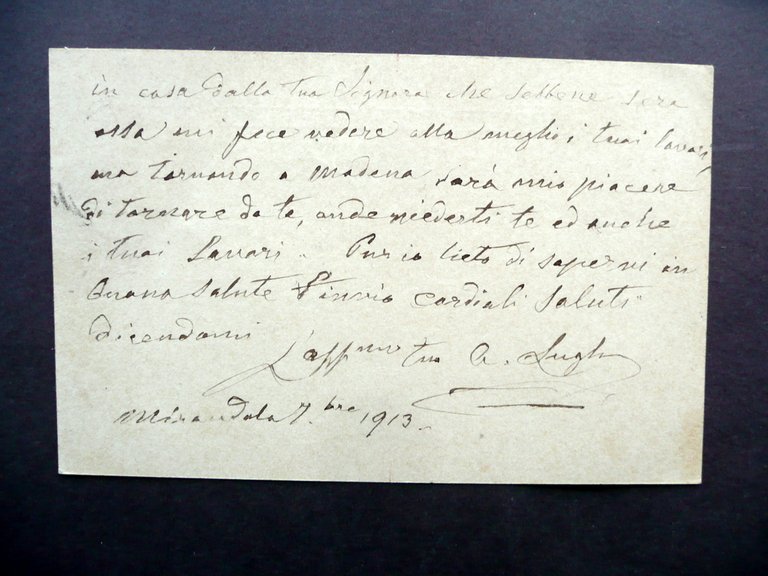 in casa dalla tua Signora che sebbene sera
essa mi fece vedere alla meglio i tuoi lavori,
ma tornando a Modena sarà mio piacere
di tornare da te, onde riederti te ed anche
i tuoi lavori. Pur io lieto di sapervi in
buona salute t'invio cordiali saluti
dicendomi
L'aff.mo tuo A. Lughi
Mirandola 7.bre 1913.